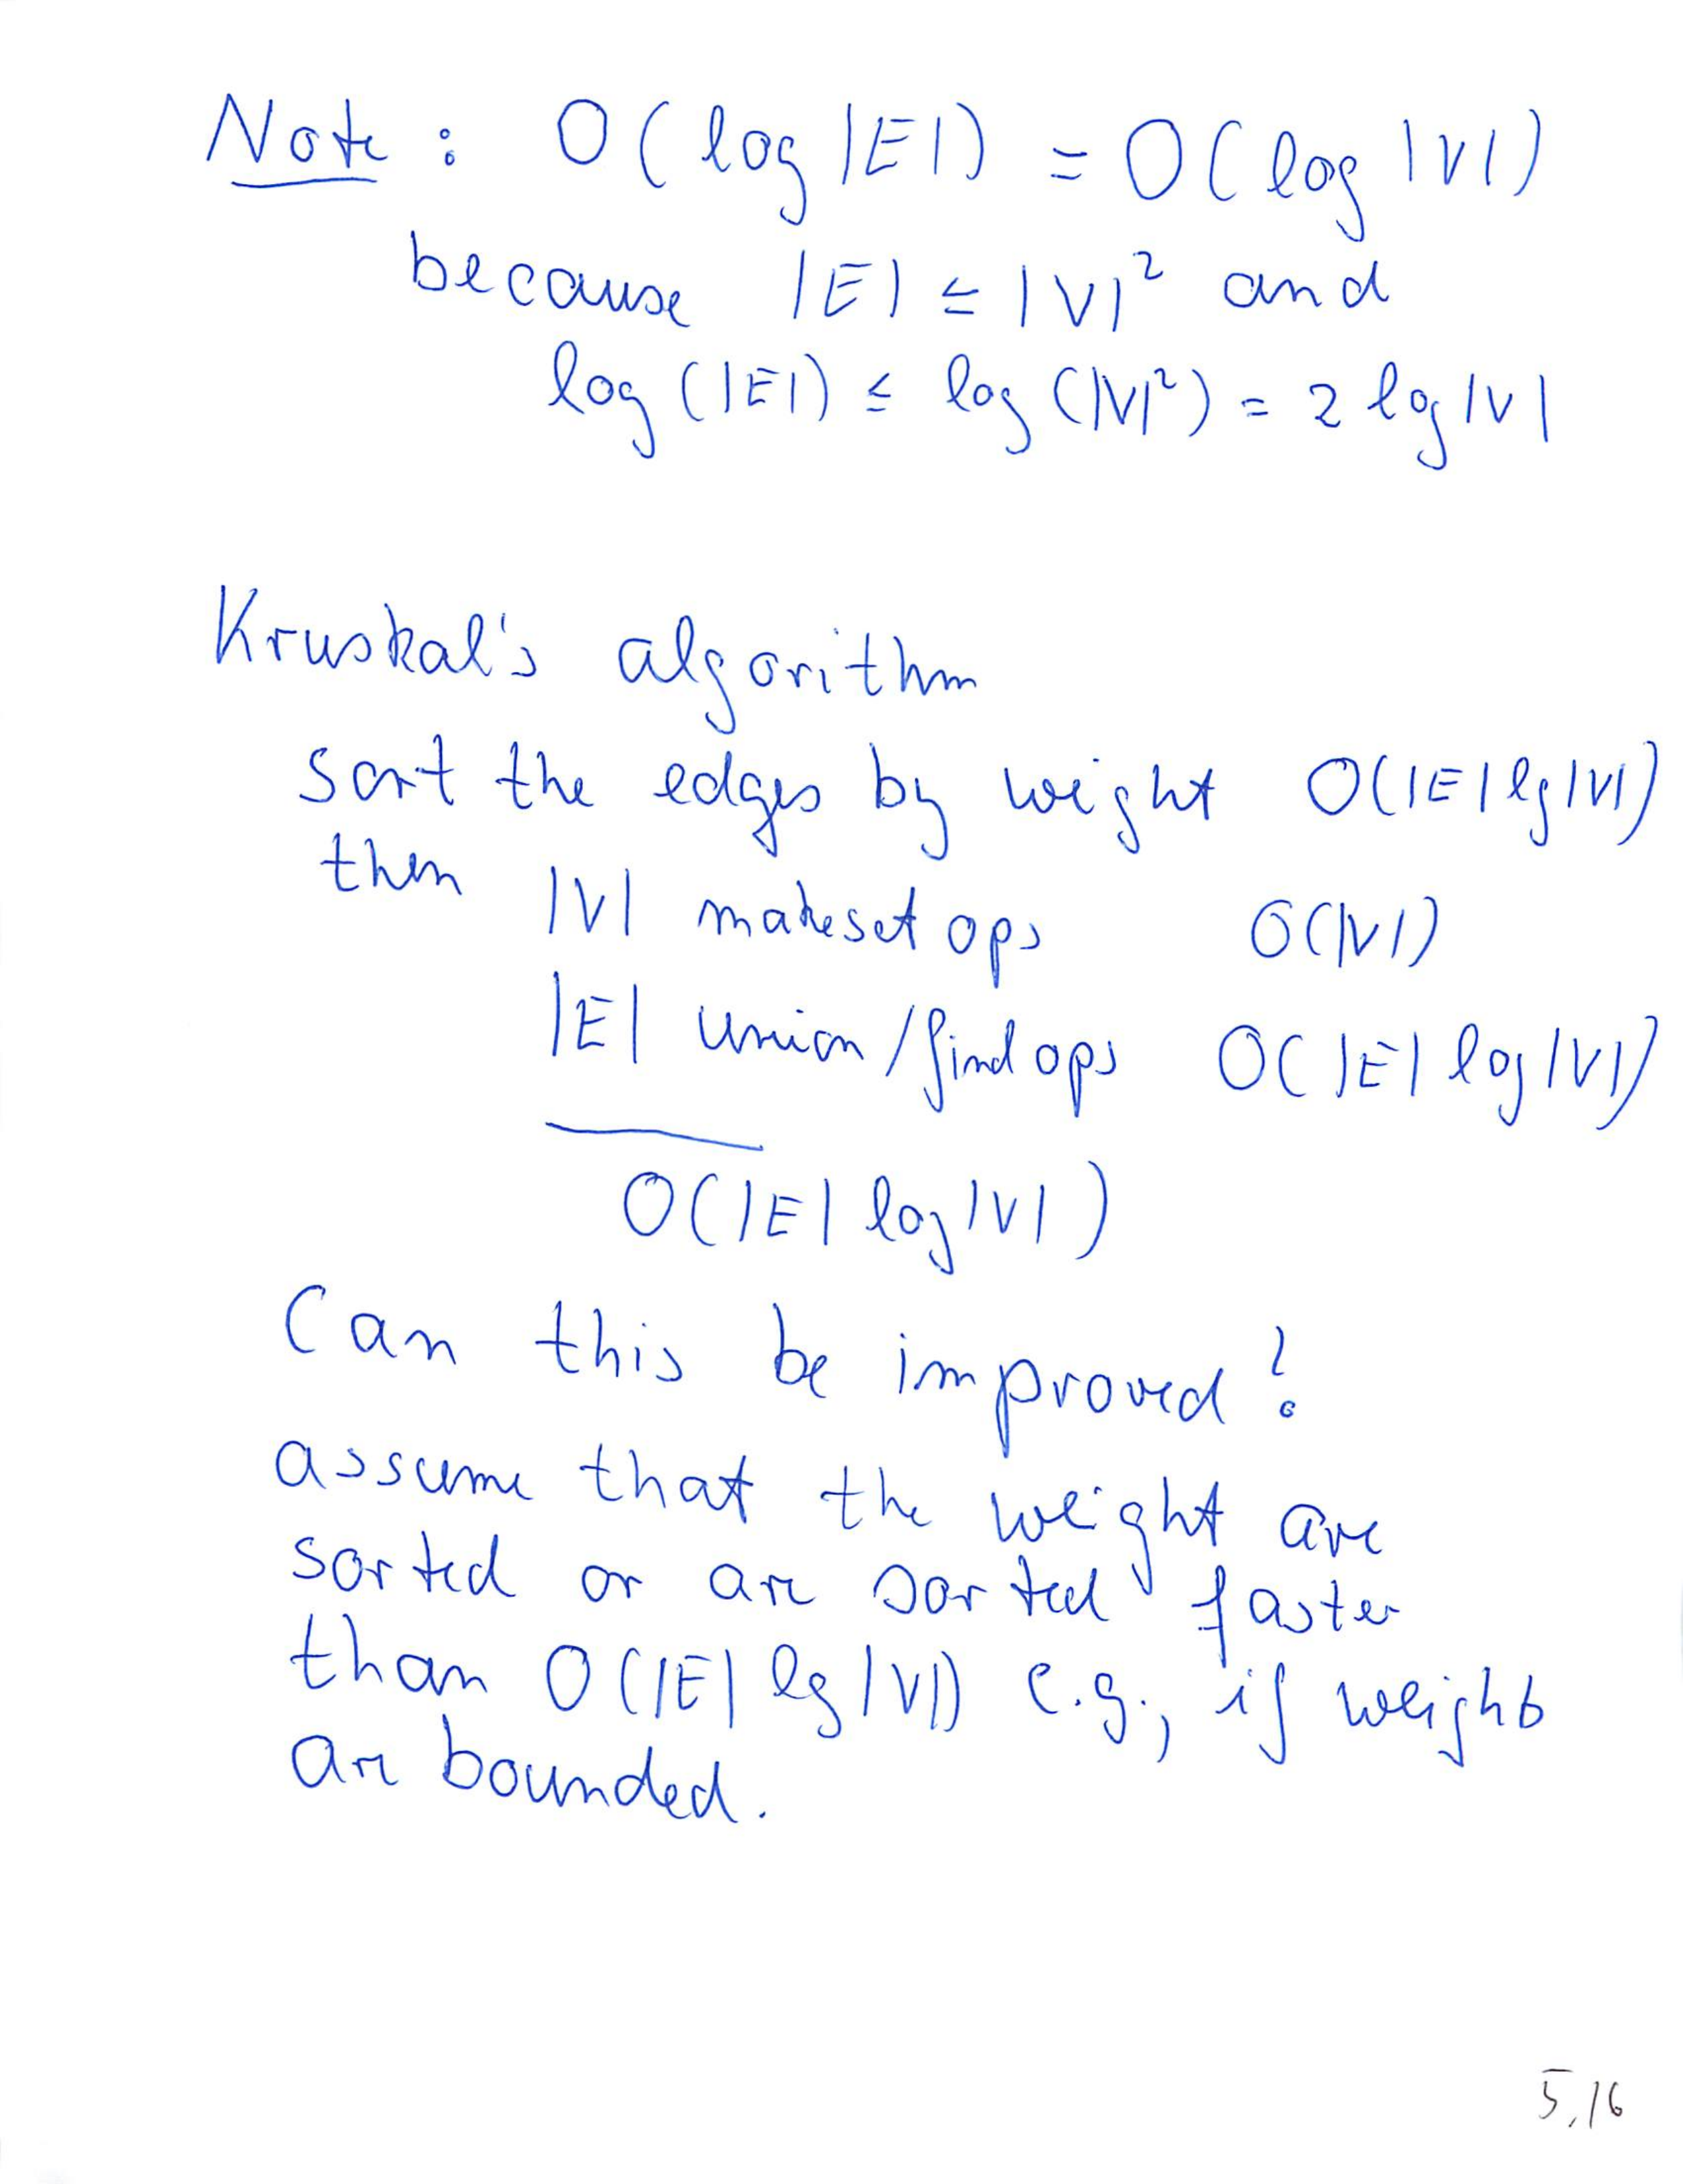 Note: O(log |E|) = O(log |V|)
because |E| ≤ |V|² and
log (|E|) ≤ log (|V|²) = 2 log |V|
Kruskal's algorithm
sort the edges by weight O(|E| lg |V|)
then |V| makeset ops O(|V|)
|E| union/find ops O(|E| log |V|)
O(|E| log |V|)
Can this be improved?
assume that the weight are
sorted or are sorted faster
than O(|E| lg |V|) e.g., if weights
are bounded.
5.16